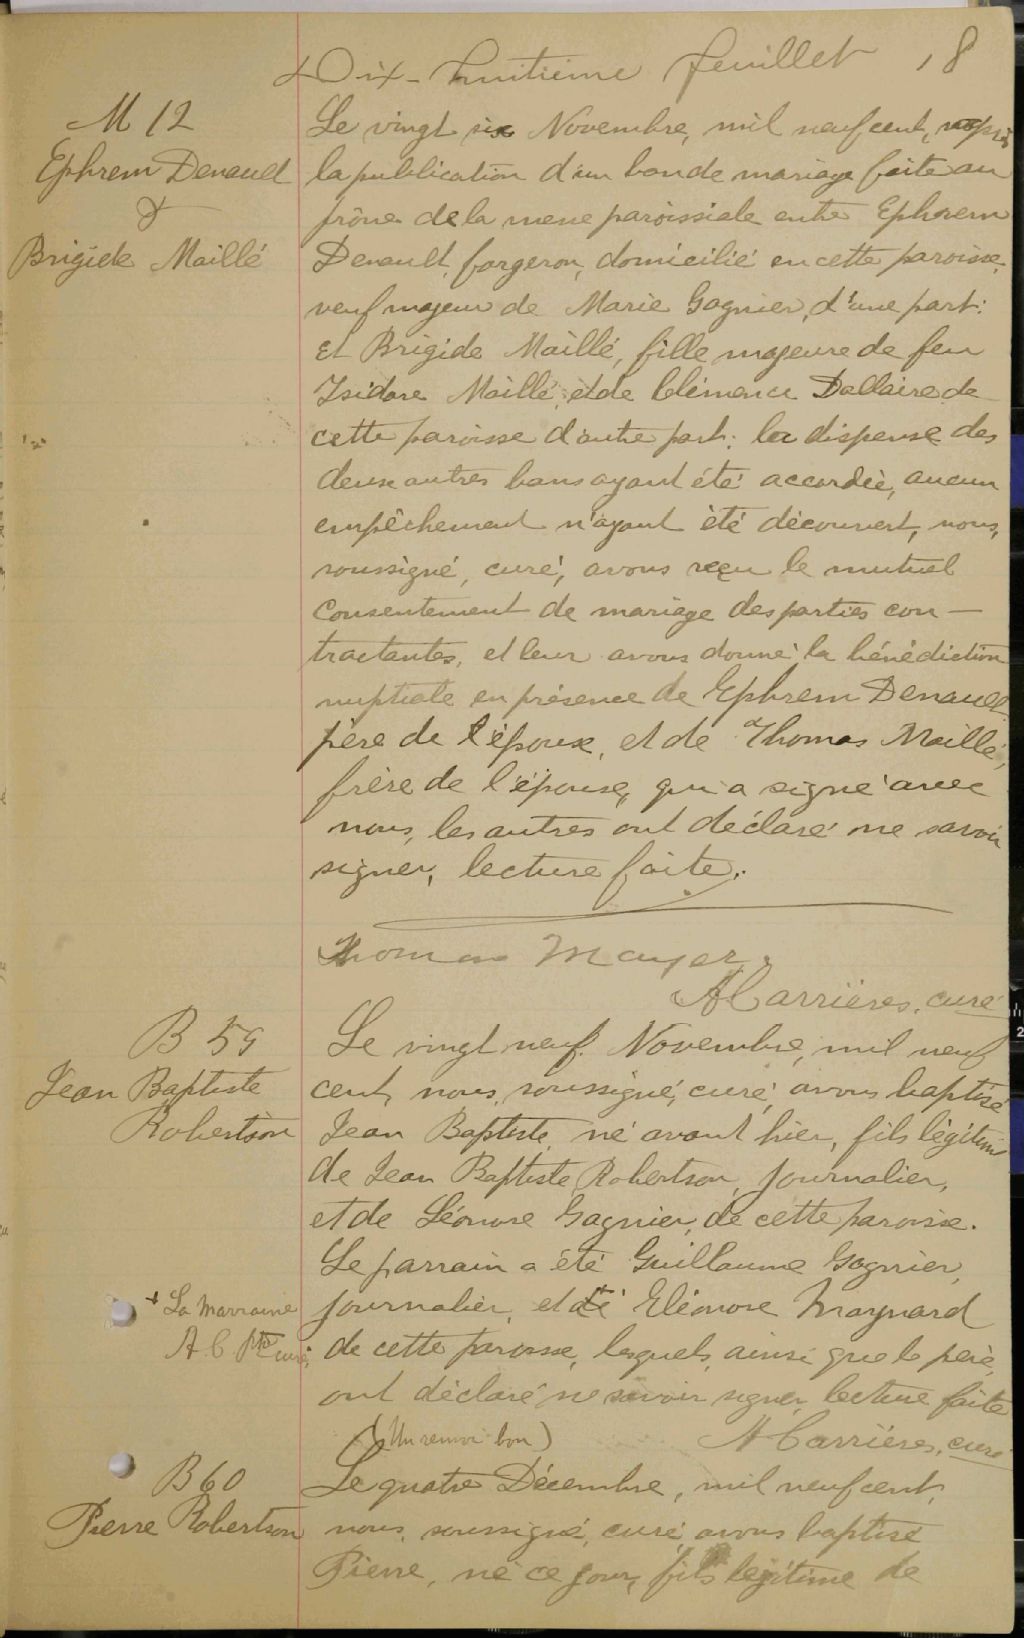 Dix-huitième feuillet 18
M 12
Ephrem Denault
&
Brigide Maillé
Le vingt six Novembre, mil neuf cent, après
la publication d'un ban de mariage faite au
prône de la messe paroissiale entre Ephrem
Denault, forgeron, domicilié en cette paroisse,
veuf majeur de Marie Gagnier, d'une part:
et Brigide Maillé, fille majeure de feu
Isidore Maillé, et de Clémence Dallaire de
cette paroisse d'autre part: la dispense des
deux autres bans ayant été accordée, aucun
empêchement n'ayant été découvert, nous,
soussigné, curé, avons reçu le mutuel
consentement de mariage des parties con-
tractantes, et leur avons donné la bénédiction
nuptiale en présence de Ephrem Denault
père de l'époux, et de Thomas Maillé,
frère de l'épouse, qui a signé avec
nous, les autres ont déclaré ne savoir
signer, lecture faite.
Thomas Mayer
A Carrières, curé
B 59
Jean Baptiste
Robertson
Le vingt neuf Novembre, mil neuf
cent, nous, soussigné, curé, avons baptisé
Jean Baptiste, né avant hier, fils légitime
de Jean Baptiste Robertson, journalier,
et de Léonore Gagnier, de cette paroisse.
Le parrain a été Guillaume Gagnier,
+ La marraine
A. C. Ptre curé
journalier, et + Eléonore Maynard
de cette paroisse, lesquels, ainsi que le père,
ont déclaré ne savoir signer, lecture faite
(Un renvoi bon)
A Carrières, curé
B 60
Pierre Robertson
Le quatre Décembre, mil neuf cent,
nous, soussigné, curé, avons baptisé
Pierre, né ce jour, fils légitime de